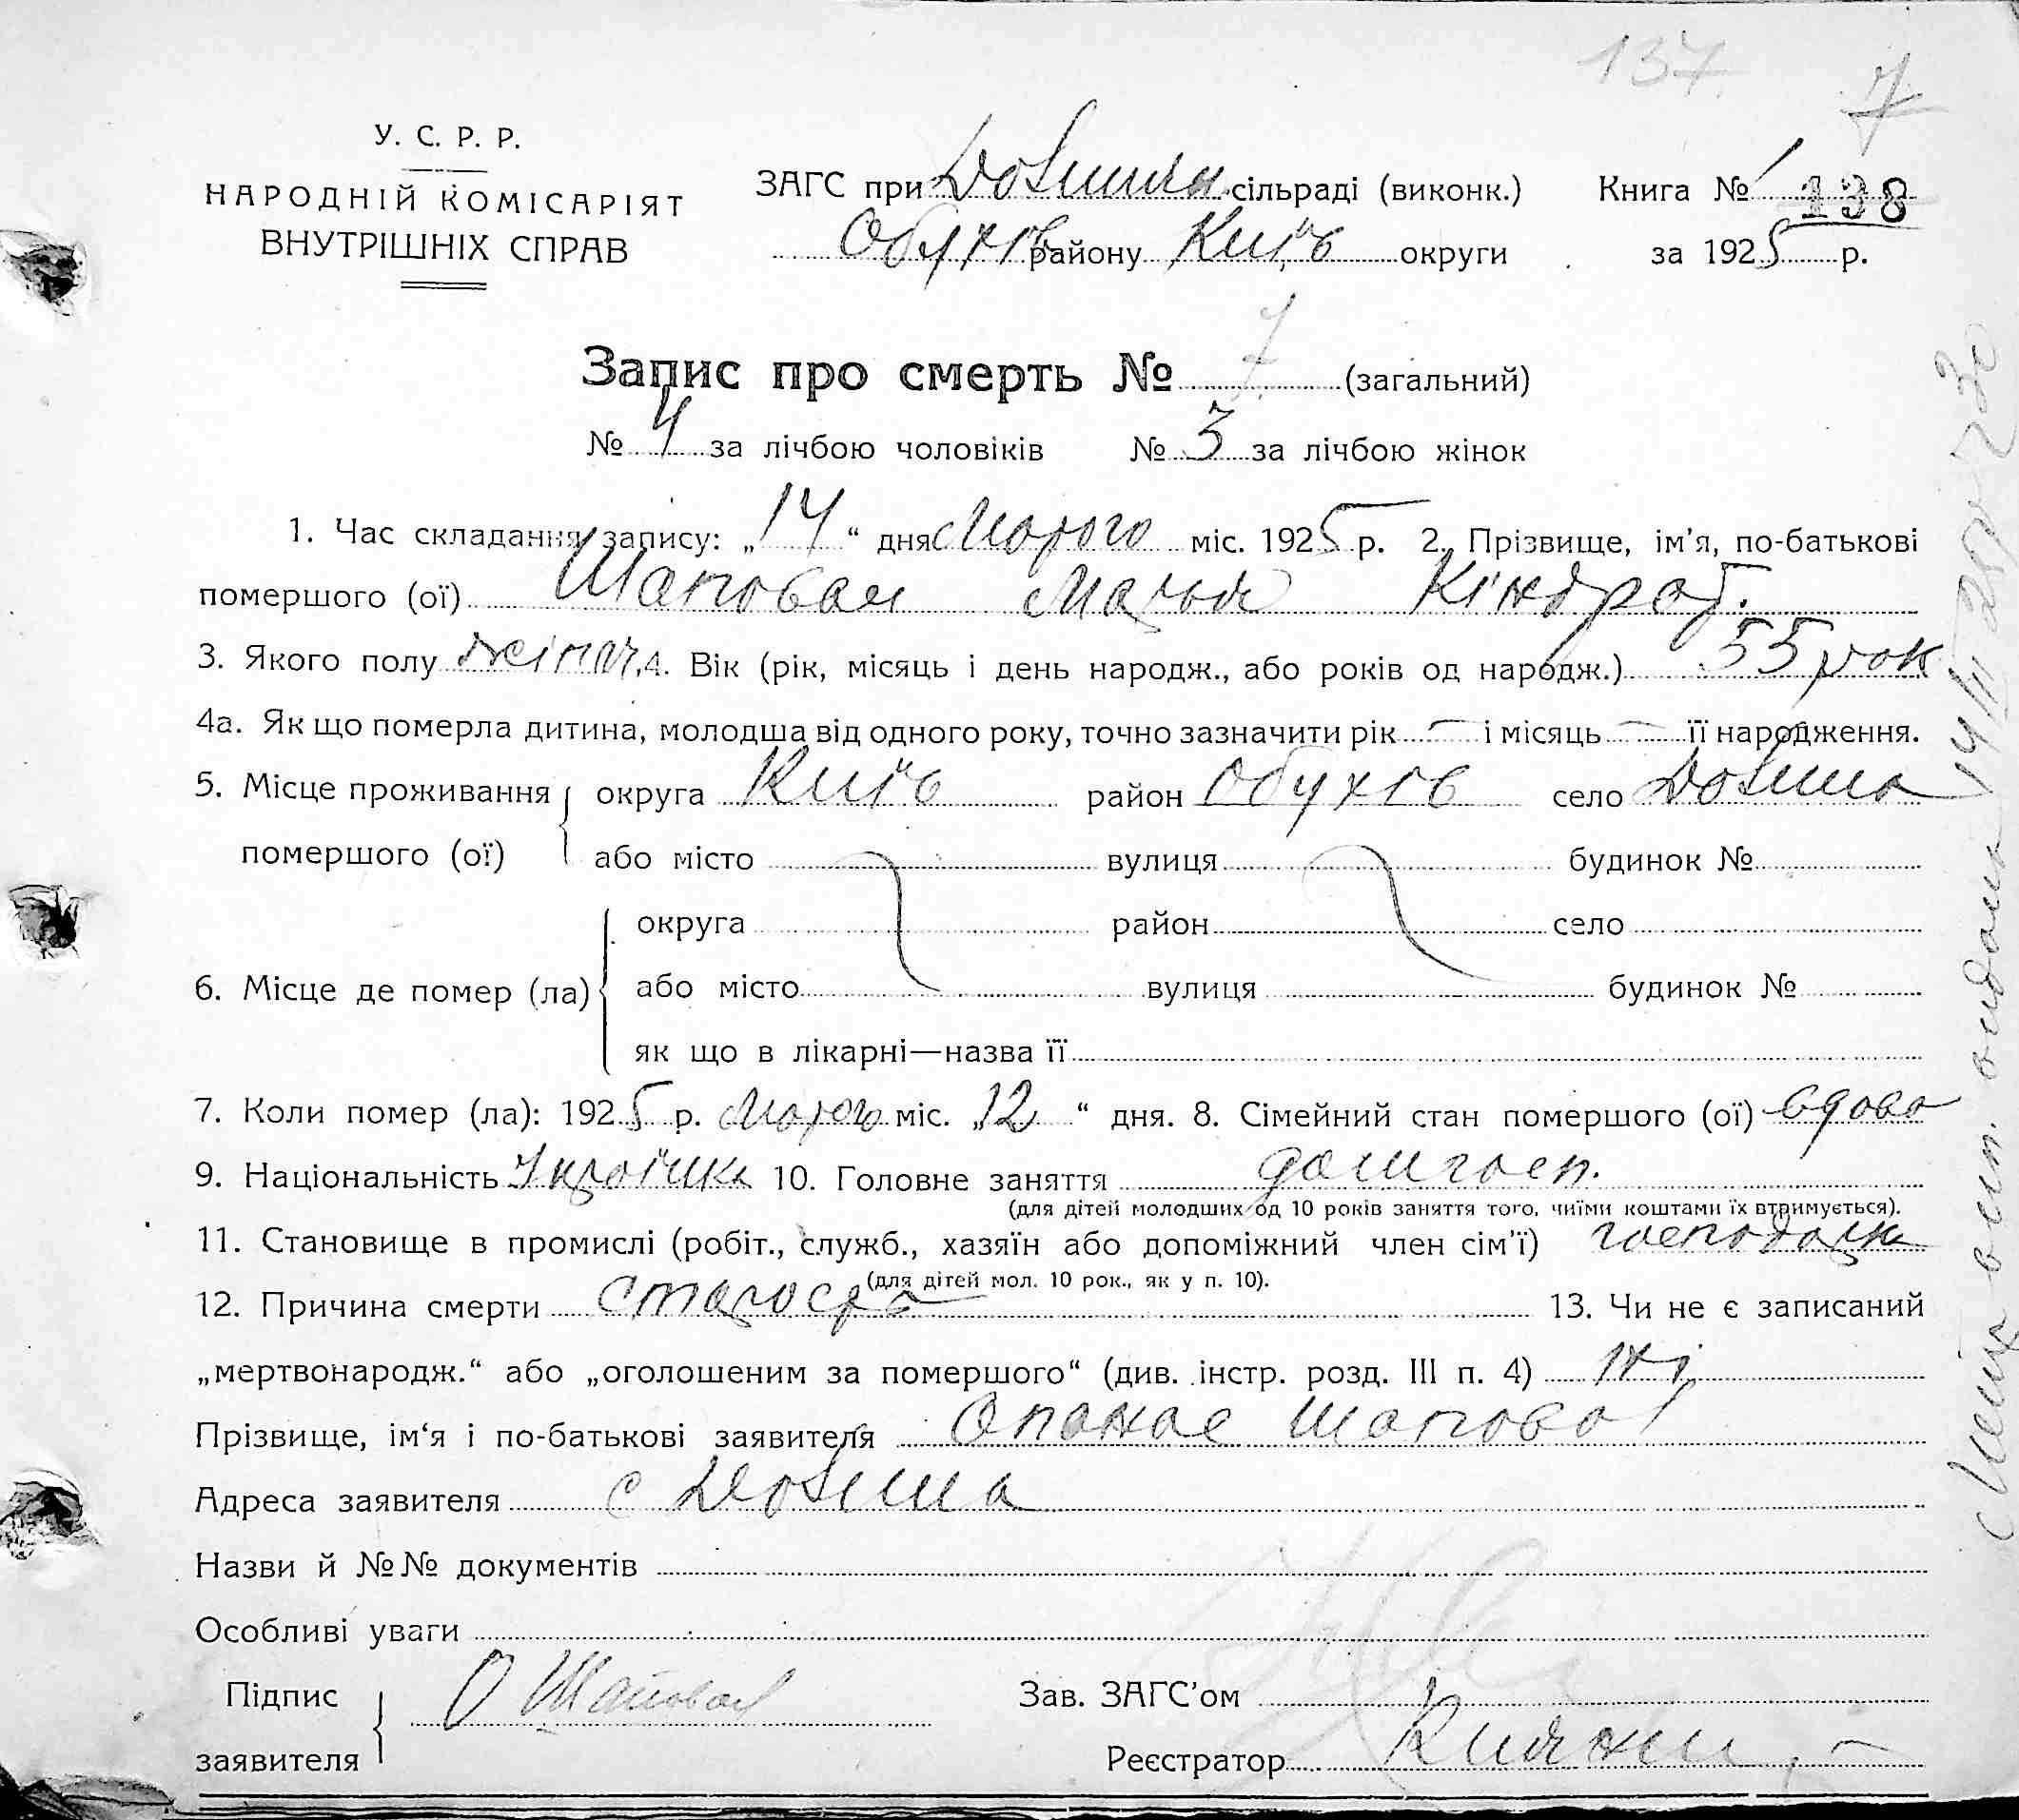 137. 7
У. С. Р. Р.
НАРОДНІЙ КОМІСАРІЯТ
ВНУТРІШНІХ СПРАВ
ЗАГС при сільраді (виконк.) Книга № 1 138
Обухів району Київ округи за 1925 р.
Запис про смерть № 7 (загальний)
№ 4 за лічбою чоловіків № 3 за лічбою жінок
1. Час складання запису: „14“ дня Лютого міс. 1925 р. 2. Прізвище, ім'я, по-батькові
помершого (ої) Шаповал Мар'я Кіндрат.
3. Якого полу жіноч. 4. Вік (рік, місяць і день народж., або років од народж.) 55 рок
4а. Як що померла дитина, молодша від одного року, точно зазначити рік — і місяць — її народження.
5. Місце проживання округа Київ район Обухів село
помершого (ої) або місто вулиця будинок №
округа район село
6. Місце де помер (ла) або місто вулиця будинок №
як що в лікарні—назва її
7. Коли помер (ла): 1925 р. Лютого міс. „12“ дня. 8. Сімейний стан помершого (ої) вдова
9. Національність Українка 10. Головне заняття дом госп.
(для дітей молодших од 10 років заняття того, чиїми коштами їх втримується).
11. Становище в промислі (робіт., служб., хазяїн або допоміжний член сім'ї) господарка
(для дітей мол. 10 рок., як у п. 10).
12. Причина смерти 13. Чи не є записаний
„мертвонародж.“ або „оголошеним за помершого“ (див. інстр. розд. III п. 4) ні
Прізвище, ім'я і по-батькові заявителя Опанас Шаповал
Адреса заявителя с
Назви й №№ документів
Особливі уваги
Підпис О Шаповал Зав. ЗАГС'ом
заявителя Реєстратор